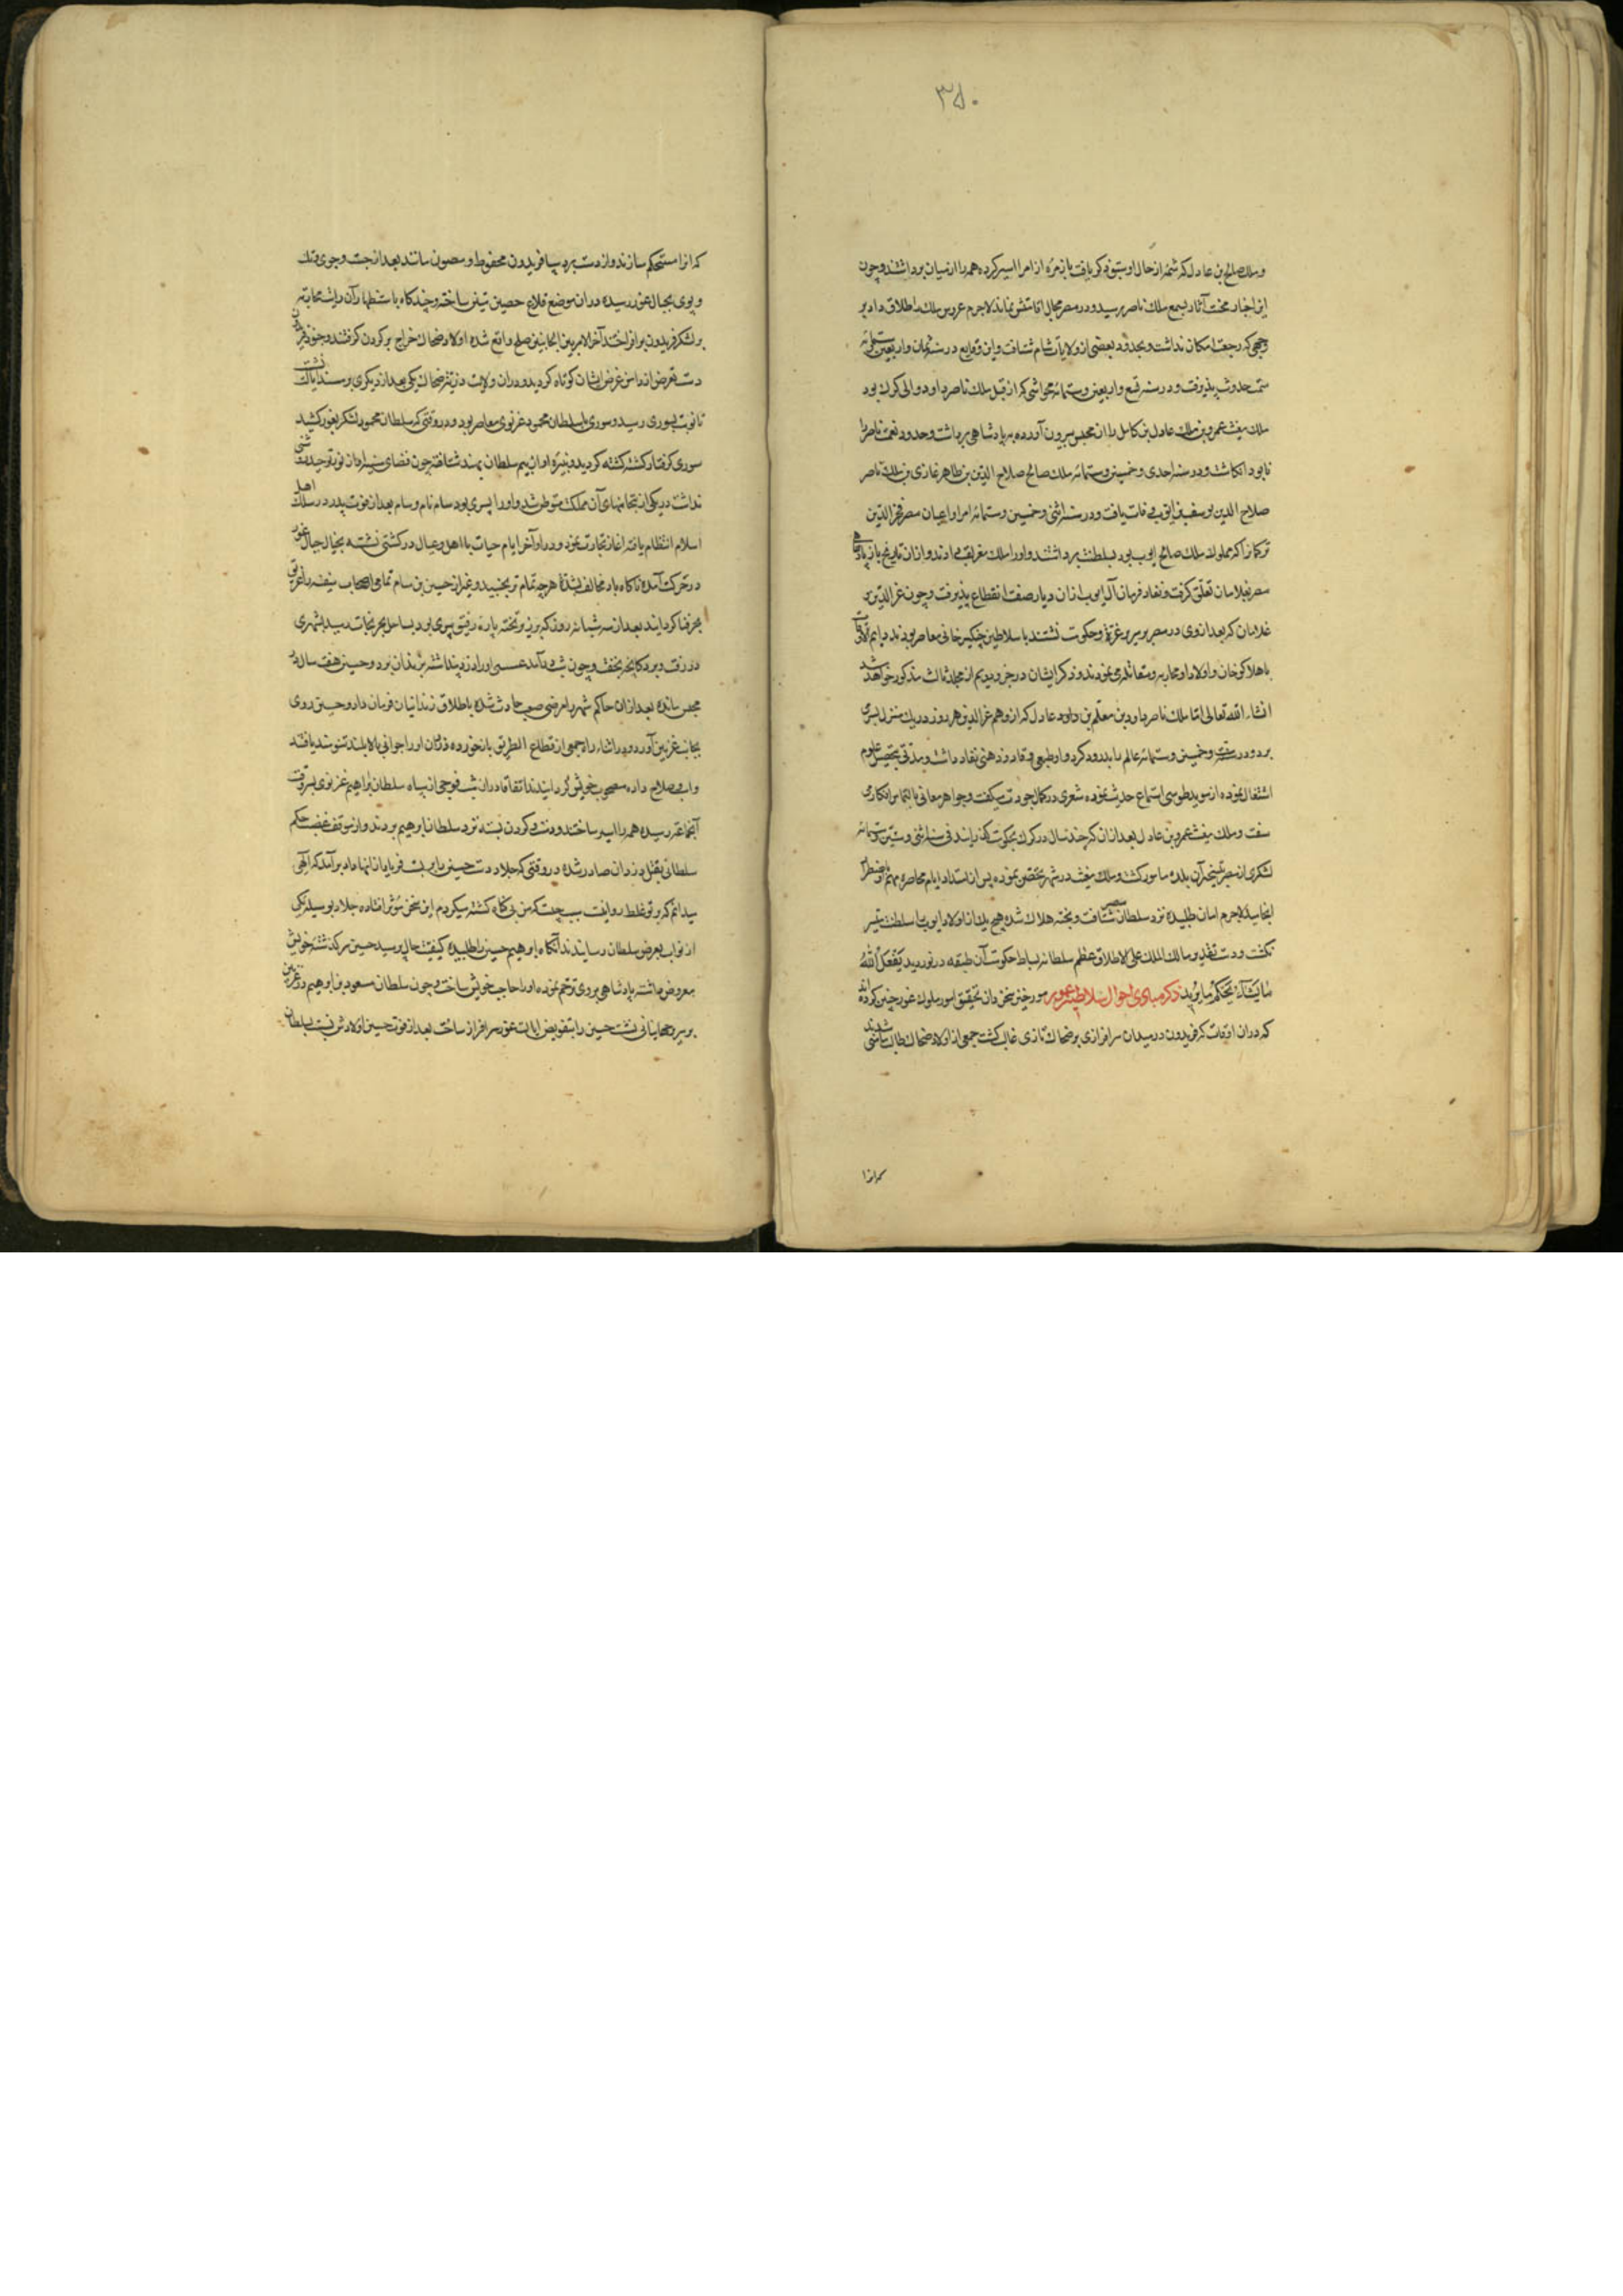 ۳۵۰
و ملک صالح بن عادل که شمهٔ از حال او سبق ذکر یافت با زمرهٔ از امرا اسیر کرده همه را از میان برداشتند و چون
این اخبار محنت آثار بسمع ملک ناصر رسید و در مصر مجال اقامتش نماند لاجرم عروس ملک را طلاق داد بر
وجهی که رجعت امکان نداشت و بحدود بعضی از ولایات شام شتافت و این وقایع در سنه ثمان و اربعین و ستمائه
سمت حدوث پذیرفت و در سنه تسع و اربعین و ستمائه که از قبل ملک ناصر داود والی کرک بود
ملک مغیث عمر بن ملک عادل بن کامل را از محبس بیرون آورده به پادشاهی برداشت و حقوق نعمت ناصر را
نابود انکاشت و در سنه احدی و خمسین و ستمائه ملک صالح صلاح الدین بن ظاهر غازی بن ملک ناصر
صلاح الدین یوسف بن ایوب وفات یافت و در سنه اثنی و خمسین و ستمائه امرا و اعیان مصر الدین
ترکمان را که مملوک ملک صالح ایوب بود بسلطنت برداشتند و او را ملک معز لقب دادند و از آن تاریخ باز پادشاهی
مصر بغلامان تعلق کرفت و نفاد فرمان آل ایوب از آن دیار صفت انقطاع پذیرفت و چون عز الدین و
غلامان که بعد از وی در مصر بر سریر عزت و حکومت نشستند با سلاطین چنکیز خانی معاصر بودند و دایم الاوقات
با هلاکو خان و اولاد او محاربه و مقاتله می نمودند و ذکر ایشان در جزو دویم از مجلد ثالث مذکور خواهد شد
انشاء الله تعالی اما ملک ناصر داود بن معظم بن عادل که از وهم عز الدین هر روز در یک منزل بسر می
برد و در سنه ست و خمسین و ستمائه عالم را بدرود کرد و او طبعی وقاد و ذهنی نقاد داشت و مدتی بتحصیل علوم
اشتغال نموده از موید طوسی استماع حدیث نموده شعری در کمال جودت میکفت و جواهر معانی بالماس افکار می
سفت و ملک مغیث عمر بن عادل بعد از آن که چند سال در کرک بحکومت کذرانید فی سنه اثنی و ستین و ستمائه
لشکری از مصر بتسخیر آن بلده مامور کشت و ملک مغیث در شهر تحصن نموده پس از امتداد ایام محاصره مهم باضطرار
انجامید لاجرم امان طلبیده نزد سلطان مصر شتافت و بحکمه هلاک شده هیچ یک از اولاد ایوب را سلطنت میسر
نکشت و دست تقدیر مالک الملک علی الاطلاق عظم سلطانه بساط حکومت آن طبقه در نوردید یفعل الله
ما یشاء و یحکم ما یرید ذکر مبادی احوال سلاطین غور مورخین سخن دان تحقیق امور ملوک غور چنین کرده اند
که در آن اوقات که فریدون در میدان سرافرازی بر ضحاک تازی غالب کشت جمعی از اولاد ضحاک طالب شدند
که آنرا
که آنرا مستحکم سازند و از دست برد سپاه فریدون محفوظ و مصون مانند بعد از جست و جوی و تک
و پوی بجبال غور رسیده در آن موضع قلاع حصین متین ساختند و چند کاه باستظهار آن رایت محاربه
بر لشکر فریدون برافراختند آخر الامر بین الجانبین صلح واقع شده اولاد ضحاک خراج بر کردن کرفتند و جنود فریدون
دست تعرض از دامن عرض ایشان کوتاه کردید و در آن ولایت ذریت ضحاک یکی بعد از دیکری بر مسند ایالت نشست
تا نوبت بسوری رسید و سوری با سلطان محمود غزنوی معاصر بود و در وقتی که سلطان محمود لشکر بغور کشید
سوری کرفتار کشته کشته کردید و نبیره او از بیم سلطان بهند شتافته چون فضای سینه اش از نور توحید روشنی
نداشت در یکی از بتخانهای آن مملکت متوطن شد و او را پسری بود سام نام و سام بعد از فوت پدر در سلک اهل
اسلام انتظام یافته آغاز تجارت نمود و در اواخر ایام حیات با اهل و عیال در کشتی نشسته بخیال جبال غور
در حرکت آمده ناکاه باد مخالف بشدت هر چه تمام تر بجنبید و غیر از حسین بن سام تمامی اصحاب سفینه را غریق
بحر فنا کردانید بعد از سه شبانه روز که بر تخته پاره رفیق ببری بود بساحل بحر نجات رسید بشهری
در رفت و بر دکانچه بخفت و چون شب درآمد عسسی او را دزد پنداشته بزندان برد و حسین هفت سال در
محبس مانده بعد از آن حاکم شهر را مرضی صعب حادث شده باطلاق زندانیان فرمان داد و حسین روی
بجانب غزنین آورد و در اثناء راه جمعی از قطاع الطریق باز خورده دزدان او را جوانی بالا بلند تنومند یافتند
و اسب و سلاح داده مصحوب خویش کردانیدند اتفاقا در آن شب فوجی از سپاه سلطان ابراهیم غزنوی بسر وقت
آن جماعت رسیده همه را اسیر ساختند و دست و کردن بسته نزد سلطان ابراهیم بردند و از موقف غضب حکم
سلطانی بقتل دزدان صادر شده در وقتی که جلاد دست حسین را بربست فریاد از نهاد او برآمد که الهی
میدانم که بر تو غلط روا نیست سبب چیست که من بی کناه کشته میکردم این سخن موثر افتاده جلاد بوسیله یکی
از نواب بعرض سلطان رسانیدند آنکاه ابراهیم حسین را طلبیده کیفیت حال پرسید حسین سرکذشت خویش
معروض داشته پادشاه بر وی ترحم نموده او را حاجب خویش ساخت و چون سلطان مسعود بن ابراهیم در غزنین
بر سریر جهانبانی نشست حسین را بتفویض ایالت غور سرافراز ساخت بعد از فوت حسین اولادش نسبت بسلطان